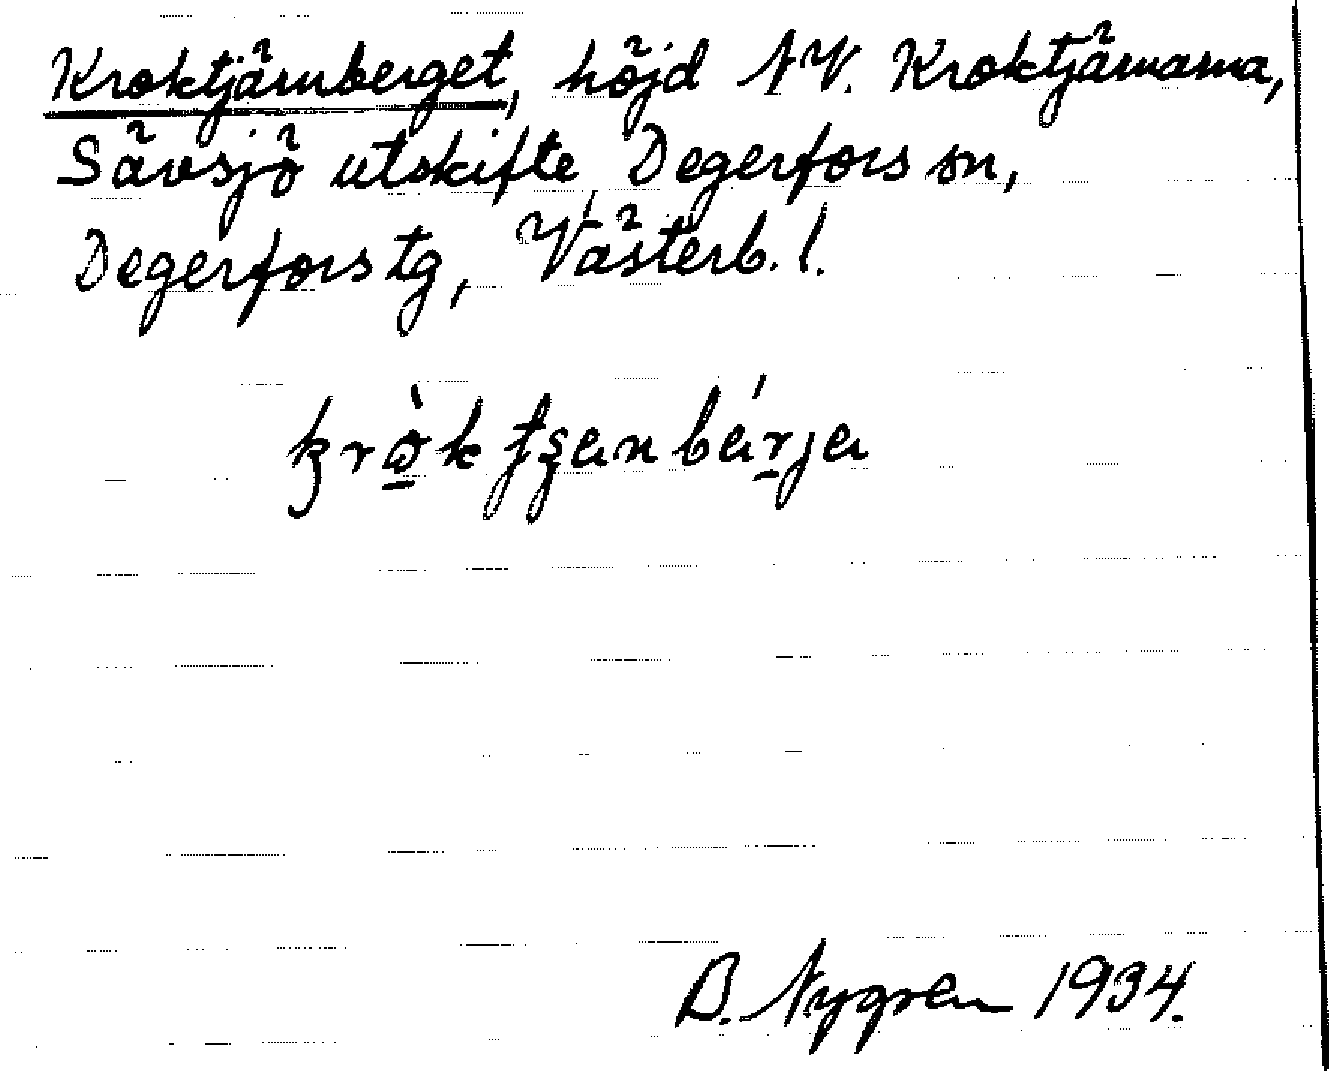 Kroktjärnberget, höjd NV. Kroktjärnarna,
Sävsjö utskifte, Degerfors sn,
Degerfors tg, Västerb. l.
B. Nygren 1934.